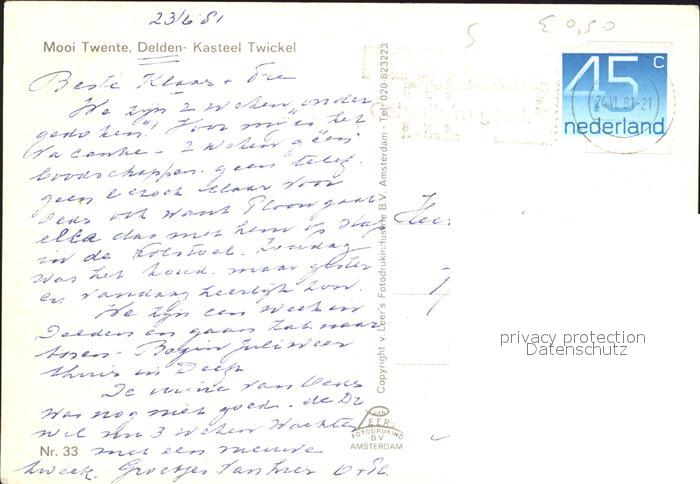 23/6 81
€ 0,50
5
Mooi Twente, Delden - Kasteel Twickel
45 c
nederland
24.VI.81-21
Beste Klaas +
We zijn 2 weken "onder
gedoken"! Voor mij is het
vacantie - 2 weken géen
boodschappen. geen telef.
geen bezoek Maar voor
ook want gaat
elke dag met hem op stap
in de Rolstoel. Zondag
was het koud. maar gister
en vandaag heerlijk zon.
We zijn een week in
Delden en gaan Zat. naar
Begin Juli weer
thuis in
De van
was nog niet goed. de Dr
wil nu 3 weken wachten
met een nieuwe
kweek. Groetjes
Nr. 33
Copyright v. Leer's Fotodrukindustrie B.V. Amsterdam - Tel. 020-823223
VAN
LEER
FOTODRUKIND
BV
AMSTERDAM
privacy protection
Datenschutz